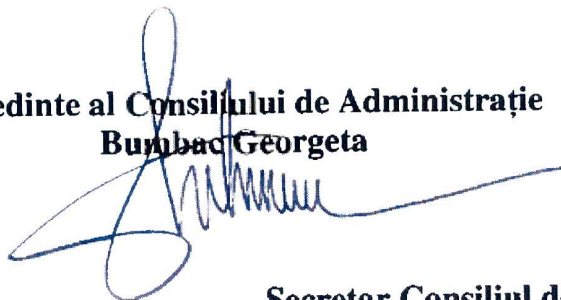 edinte al Consiliului de Administrație
Bumbac Georgeta
Secretar Consiliul d